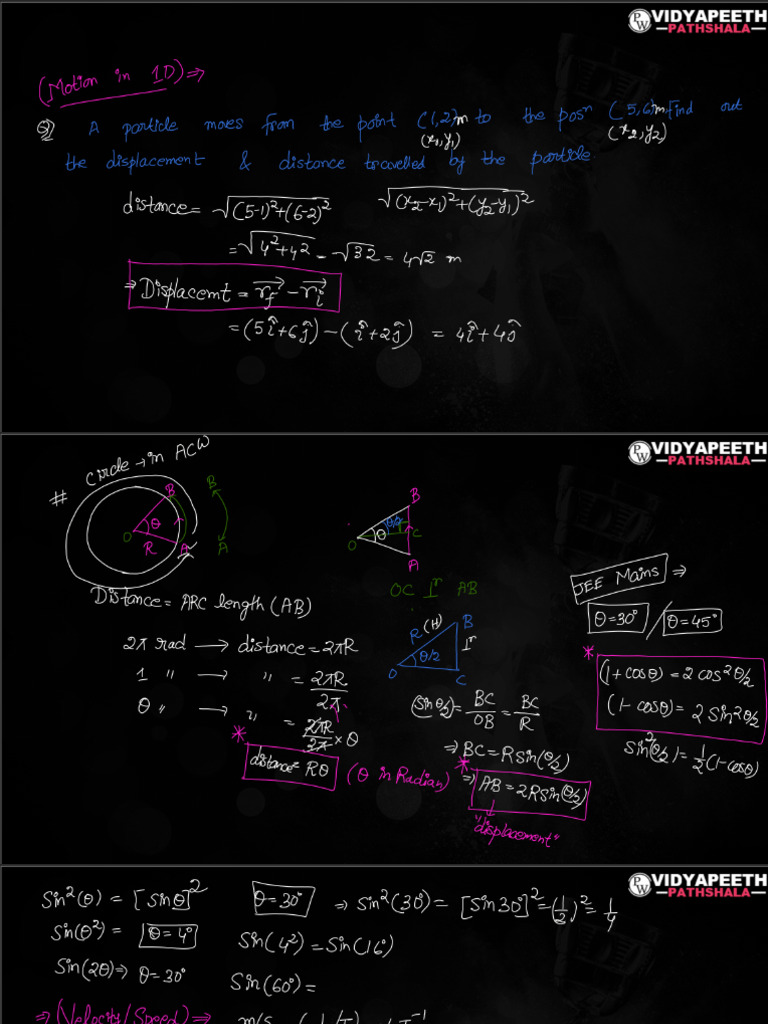 PW VIDYAPEETH
PATHSHALA
(Motion in 1D)⇒
Q) A particle moves from the point (1,2)m to the posⁿ (5,6)m. Find out
(x₁,y₁) (x₂,y₂)
the displacement & distance travelled by the particle
distance = √(5-1)²+(6-2)² √(x₂-x₁)²+(y₂-y₁)²
= √4²+4² = √32 = 4√2 m
⇒ Displacemt = r⃗f - r⃗i
= (5î+6ĵ) - (î+2ĵ) = 4î+4ĵ
PW VIDYAPEETH
PATHSHALA
# Circle → in ACW
B
B
θ
O
R
A
A
B
θ/2
θ
O
C
A
OC ⊥r AB
Distance = ARC length (AB)
2π rad → distance = 2πR
1 〃 → 〃 = 2πR/2π
θ 〃 → 〃 = 2πR/2π × θ
* distance = Rθ (θ in Radian)
R (H) B
⊥r
θ/2
O C
(Sin θ/2) = BC/OB = BC/R
⇒ BC = R sin(θ/2)
* ⇒ AB = 2R sin(θ/2)
"displacement"
JEE Mains ⇒
θ=30° / θ=45°
* (1+cosθ) = 2 cos²θ/2
(1-cosθ) = 2 Sin²θ/2
Sin²(θ/2) = 1/2 (1-cosθ)
PW VIDYAPEETH
PATHSHALA
Sin²(θ) = [sinθ]² θ=30° ⇒ Sin²(30°) = [Sin30°]² = (1/2)² = 1/4
Sin(θ²) = θ=4° Sin(4²) = Sin(16°)
Sin(2θ) ⇒ θ=30° Sin(60°) =
⇒ (Velocity/Speed) ⇒ m/s